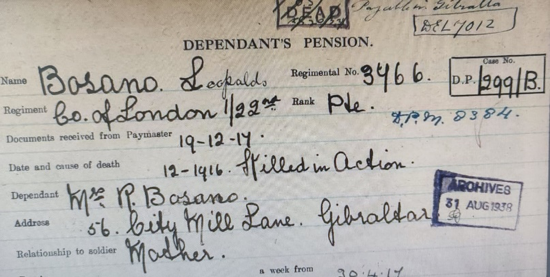 DEAD
Payable in Gibraltar
DEL 7012
DEPENDANT'S PENSION.
Name Bosano. Leopaldo Regimental No. 3466. Case No. D.P. 1299/B.
Regiment Co. of London 1/22nd Rank Pte.
D.P.M. 8384.
Documents received from Paymaster 19-12-17.
Date and cause of death 12-1916. Killed in Action.
Dependant Mrs R. Bosano.
Address 56. City Mill Lane. Gibraltar
Relationship to soldier Mother.
ARCHIVES
31 AUG 1938
a week from 30.4.17